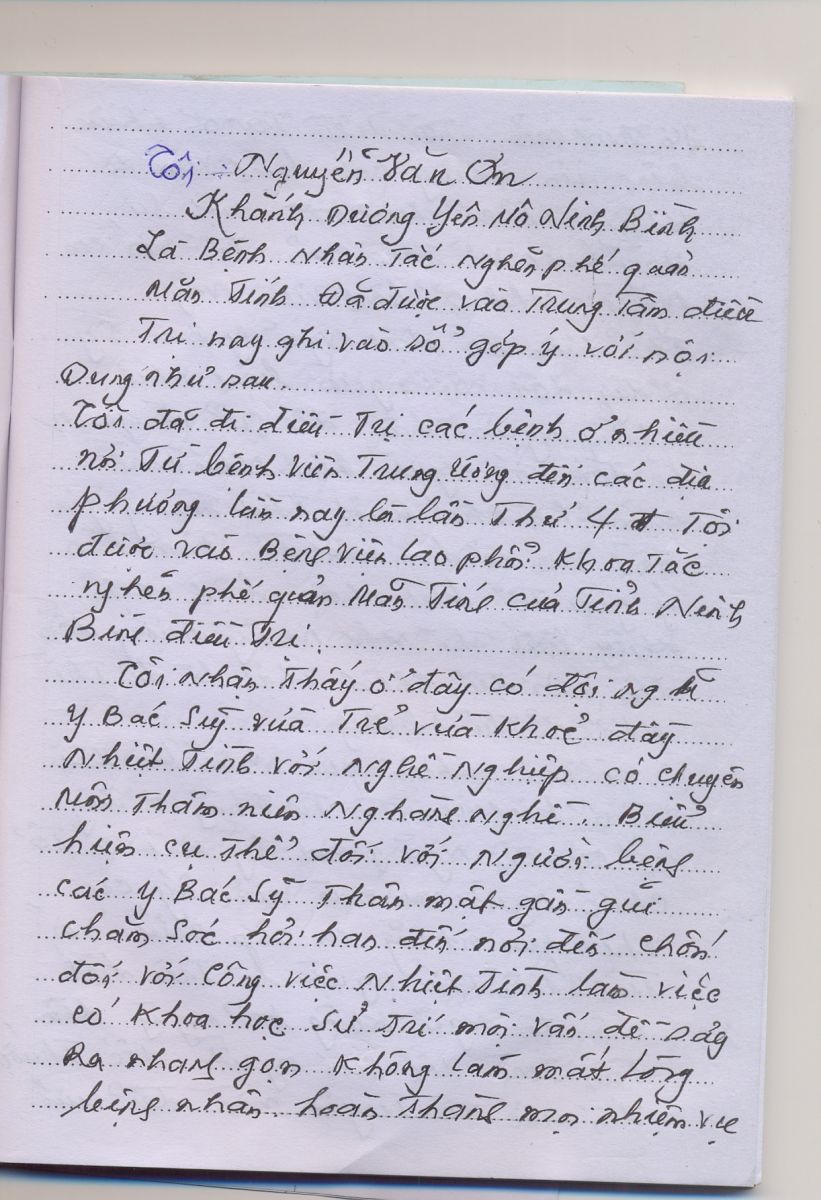 Tôi : Nguyễn Văn Ơn
Khánh Dương Yên Mô Ninh Bình
Là Bệnh Nhân Tắc Nghẽn phế quản
Mãn Tính Đã được vào Trung Tâm điều
Trị nay ghi vào sổ góp ý với nội
Dung như sau.
Tôi đã đi điều Trị các bệnh ở nhiều
nơi Từ bệnh viện Trung ương đến các địa
phương lần này là lần Thứ 4 Tôi
được vào Bệng viện lao phổi Khoa Tắc
nghẽn phế quản Mãn Tíng của Tỉnh Ninh
Bìng điều Trị
Tôi nhân Thấy ở đây có đội ngũ
y Bác Sỹ vừa Trẻ vừa Khoẻ đầy
Nhiệt Tình với Nghề Nghiệp có chuyên
Môn Thâm niên Nghàng Nghề. Biểu
hiện cụ thể đối với Người bệng
các y Bác Sỹ Thân mật gần gũi
chăm Sóc hỏi han đến nơi đến chốn
đối với Công việc Nhiệt Tình làm việc
có Khoa học Sử Trí mọi vấn đề sảy
Ra nhang gọn Không làm mất Lòng
bệng nhân. hoàn Thàng mọi nhiệm vụ